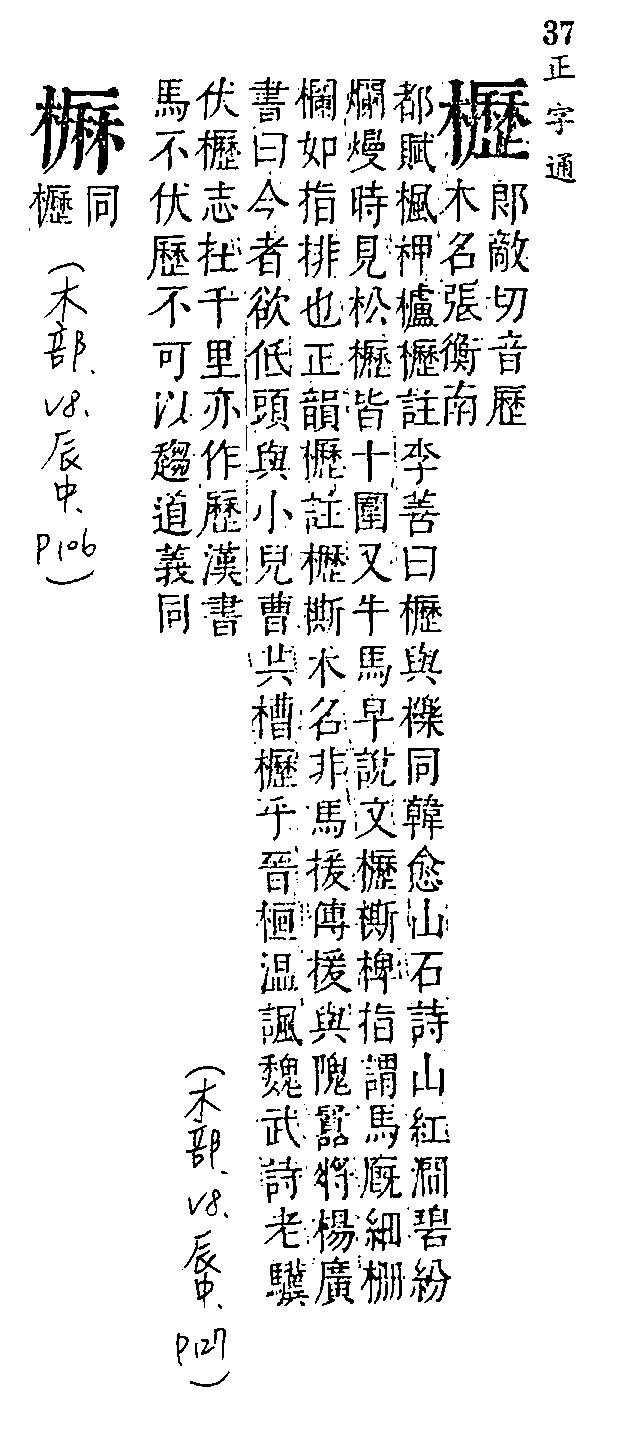 37
正字通
櫪
郎敵切音歷
木名張衡南
都賦楓柙櫨櫪註李善曰櫪與櫟同韓愈山石詩山紅澗碧紛
爛熳時見松櫪皆十圍又牛馬皁說文櫪㯕椑指謂馬廄細柵
欄如指排也正韻櫪註櫪㯕木名非馬援傳援與隗囂將楊廣
書曰今者欲低頭與小兒曹共槽櫪乎晉桓溫諷魏武詩老驥
伏櫪志在千里亦作歷漢書
馬不伏歷不可以趨道義同
(木部、v8、辰中、p127)
㰖
同
櫪
(木部、v8、辰中、p106)